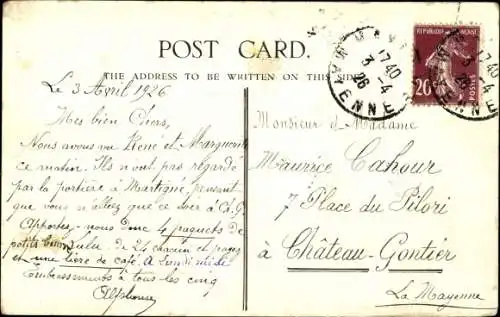 POST CARD.
THE ADDRESS TO BE WRITTEN ON THIS SIDE
MAYENNE
17 40
3 - 4
26
MAYENNE
17 40
3 - 4
26
REPUBLIQUE FRANÇAISE
20
POSTES
Le 3 Avril 1926
Mes bien Chers,
Nous avons vu René et Marguerite
ce matin. Ils n'ont pas regardé
par la portière à Martigné, pensant
que vous n'alliez que ce soir à Ch-G
Apportez-nous donc 4 paquets de
petits de 24 chacun et payés
et une livre de café. A Lundi midi
Embrassements à tous les cinq
Alphonse
Monsieur et Madame
Maurice Cahour
7 Place du Pilori
à Château-Gontier
La Mayenne